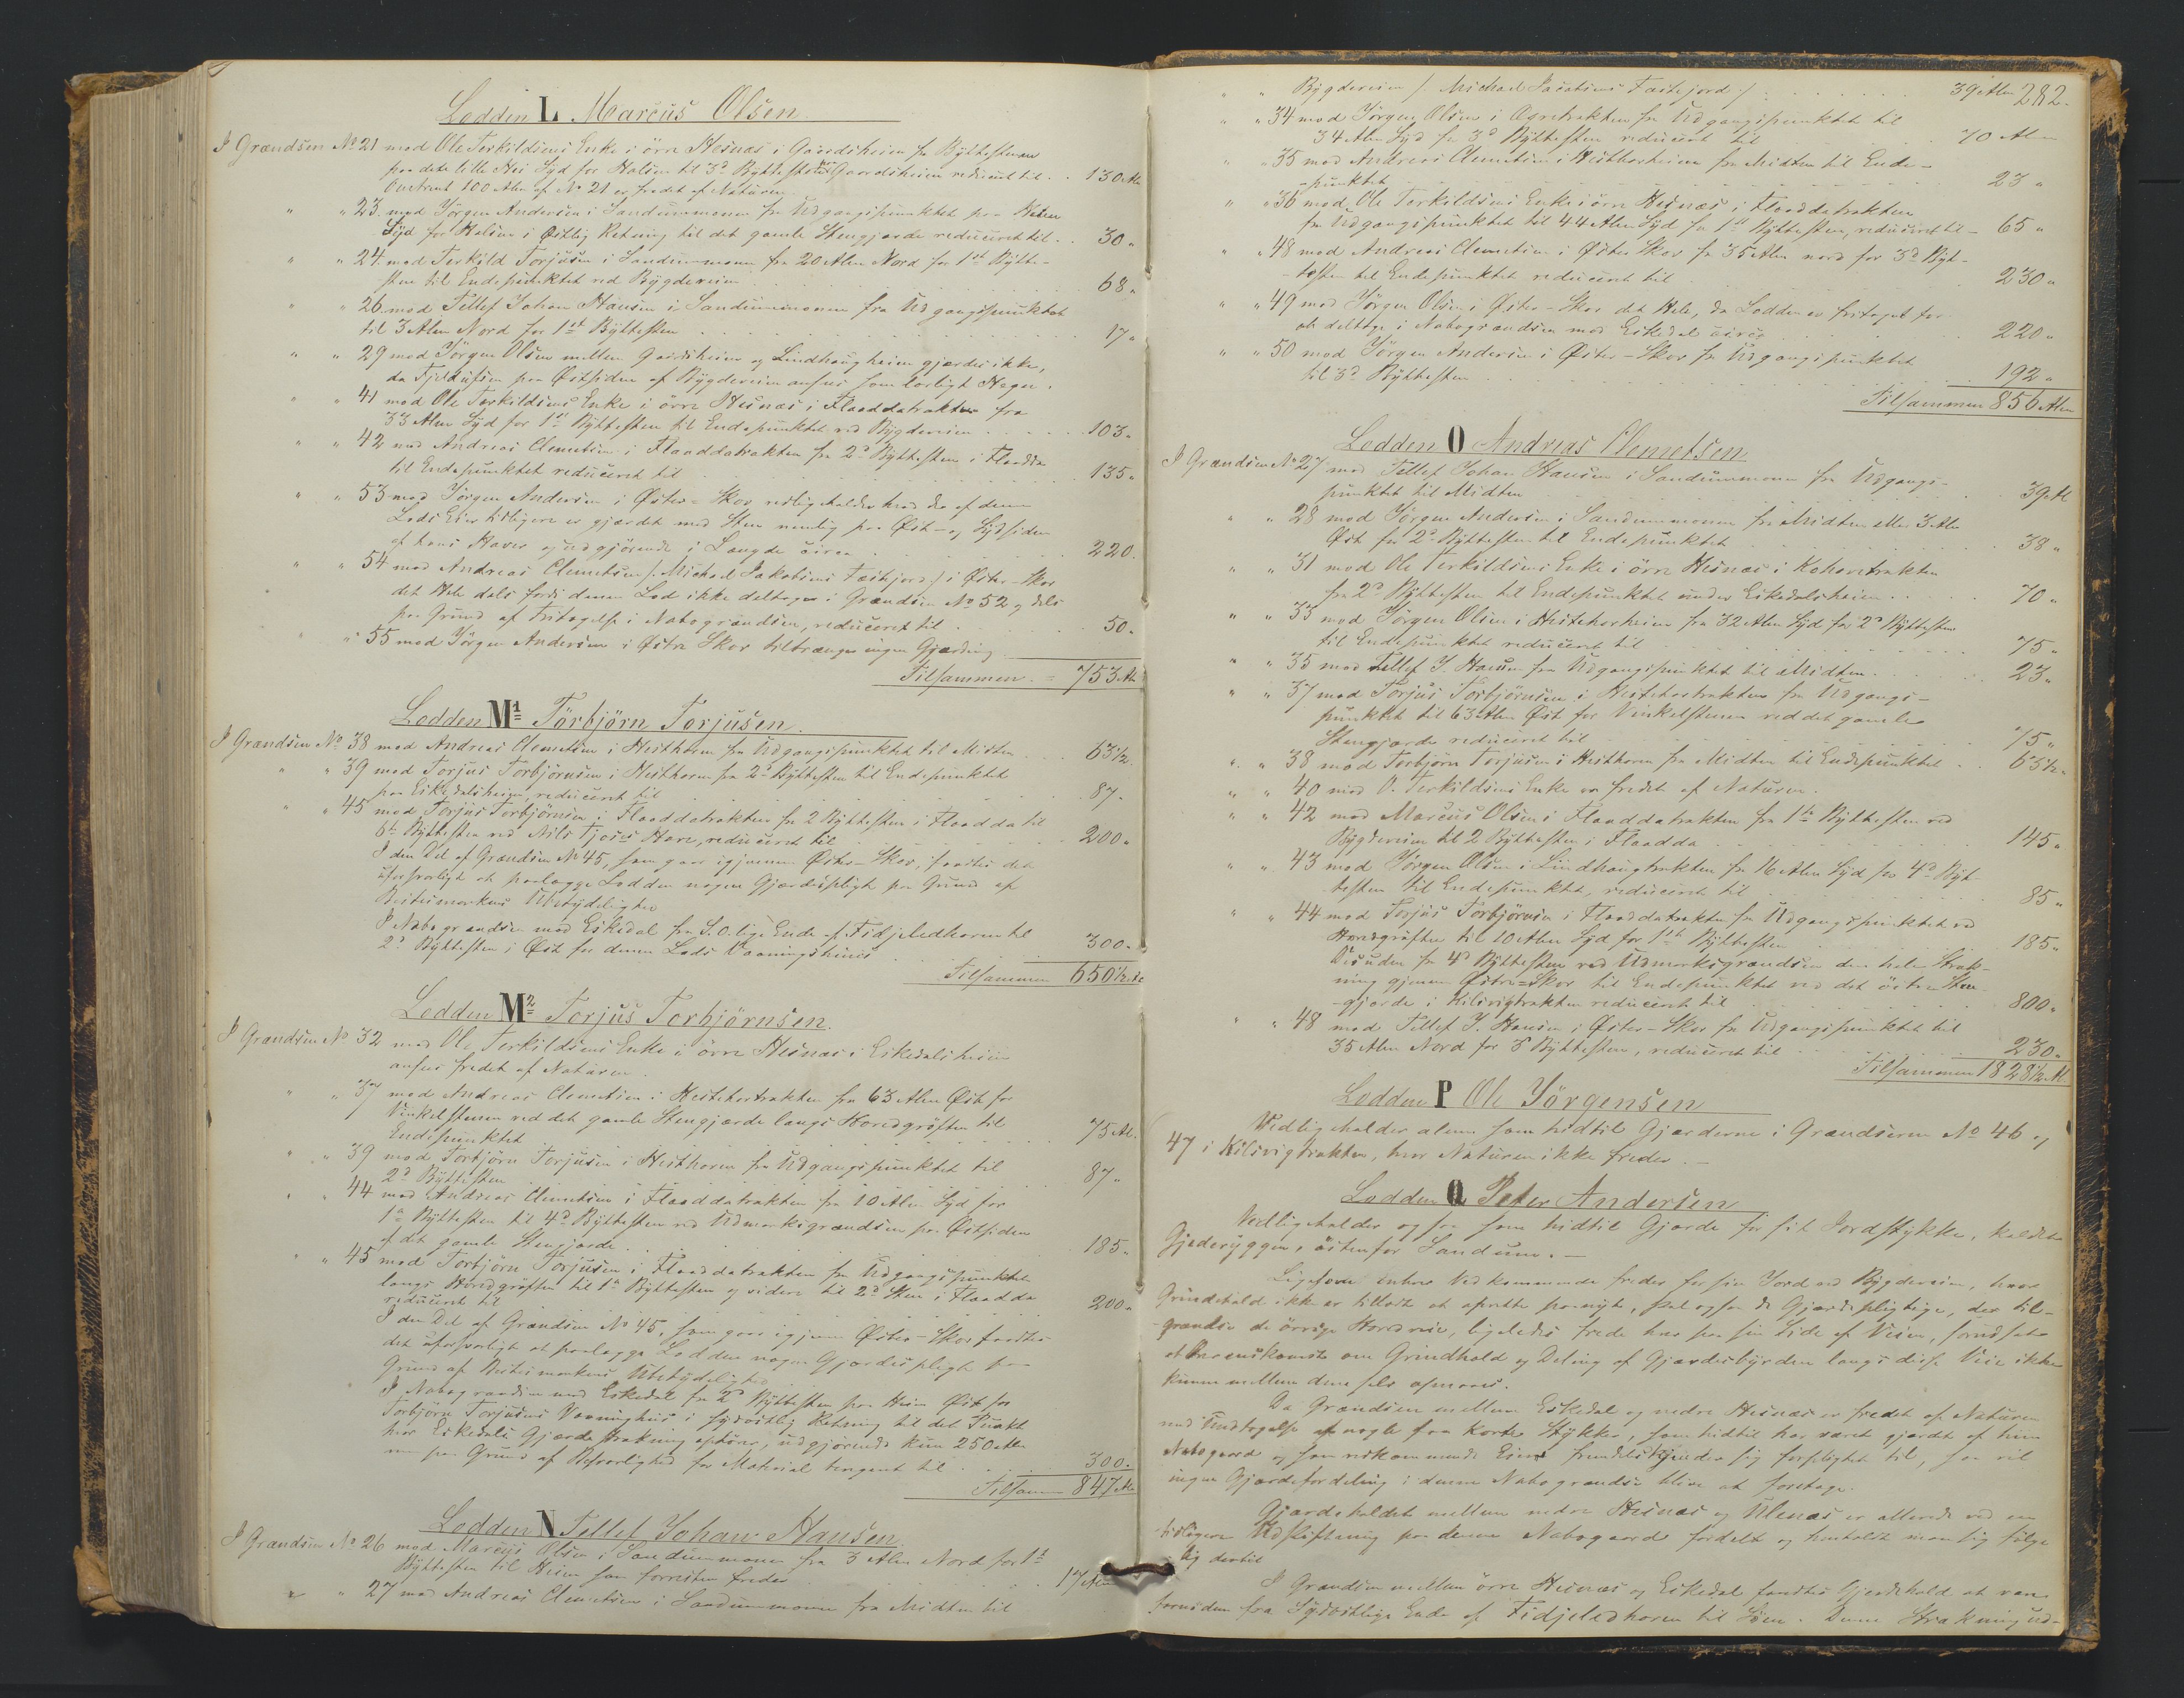 Lodden L. Marcus Olsen
I Grændsen No 21 mod Ole Terkildsens Enke i örre Hesnæs i Gaardsheien fra Byttestenen
paa dets lille Hei Syd for Holsen til 3d Byttesten ved Gaardsheien reduceret til . . 130 Aln
Omtrent 100 Alen af No 21 er fredet af Naturen.
" " 23. mod Jörgen Andersen i Sandummonen fra Udgangspunktet paa Heien
Syd for Holsen i Östlig Retning til det gamle Stengjærde reduceret til . . 30 "
" " 24. mod Terkild Torjusen i Sandummonen fra 20 Alen Nord for 1ste Bytte-
sten til Endepunktet ved Bygdeveien . . . 68 "
" " 26. mod Tellef Johan Hansen i Sandummonen fra Udgangspunktet
til 3 Alen Nord for 1ste Byttesten . . . 17 "
" " 29 mod Jörgen Olsen mellem Gaardsheien og Lindhougheien gjærdes ikke,
da Fjeldufsen paa Östsiden af Bygdeveien ansees som lovligt Hegn.
" " 41 mod Ole Terkildsens Enke i örre Hesnæs i Flaaddatrakten fra
33 Alen Syd for 1ste Byttesten til Endepunktet ved Bygdeveien . . . 103 "
" " 42 mod Andreas Clemetsen i Flaaddatrakten fra 2d Byttesten i Flaadda
til Endepunktet reduceret til . . . 135 "
" " 53 mod Jörgen Andersen i Öster-Skov vedligeholdes hvad der af denne
Lods Eier tidligere er gjærdet med Sten nemlig paa Öst- og Sydsiden
af hans Haver og udgjörende i Længde circa . . . 220.
" " 54 mod Andreas Clemetsen /: Michael Jakobsens Fæstejord :/ i Öster-Skov
det Hele dels fordi denne Lod ikke deltager i Grændsen No 52 og dels
paa Grund af Fritagelse i Nabogrændsen, reduceret til . . . 50 "
" " 55 mod Jörgen Andersen i Östre Skov tiltrænges ingen Gjærding
Tilsammen = 753 Aln
Lodden M1 Torbjörn Torjusen.
I Grændsen No 38 mod Andreas Clemetsen i Hesthoven fra Udgangspunktet til Midten . . . 63½ "
" " 39 mod Torjus Torbjörnsen i Hesthoven fra 2d Byttesten til Endepunktet
paa Eikedalsheien, reduceret til . . . 87 "
" " 45 mod Torjus Torbjörnsen i Flaaddatrakten fra 2 Byttesten i Flaadda til
6te Byttesten ved Nils Tjoses Have, reduceret til . . . 200 "
I den Del af Grændsen No 45, som gaar igjennem Öster-Skov, fandtes det
uforsvarligt at paalægge Lodden nogen Gjærdespligt paa Grund af
Beitesmarkens Ubetydelighed
I Nabogrændsen mod Eskedal fra S.O.lige Ende af Fidjeledhoven til
2d Byttesten i Öst for denne Lods Vaaningshuus . . . 300 "
Tilsammen 650½ Al
Lodden M2 Torjus Torbjörnsen.
I Grændsen No 32 mod Ole Terkildsens Enke i örre Hesnæs i Eikedalsheien
ansees fredet af Naturen.
" " 37 mod Andreas Clemetsen i Hestehovtrakten fra 63 Alen Öst for
Vinkelstenen ved det gamle Stengjærde langs Hovedgröften til
Endepunktet . . . 75 Al.
" " 39 mod Torbjörn Torjusen i Hesthoven fra Udgangspunktet til
2d Byttesten . . . 87 "
" " 44 mod Andreas Clemetsen i Flaaddatrakten fra 10 Alen Syd for
1ste Byttesten til 4d Byttesten ved Udmarksgrændsen paa Östsiden
af det gamle Stengjærde . . . 185 "
" " 45 mod Torbjörn Torjusen i Flaaddatrakten fra Udgangspunktet
langs Hovedgröften til 1ste Byttesten og videre til 2d Sten i Flaadda
reduceret til . . . 200 "
I den Del af Grændsen No 45, som gaar igjennem Öster-Skov fandtes
det uforsvarligt at paalægge Lodden nogen Gjærdespligt paa
Grund af Beitesmarkens Ubetydelighed
I Nabogrændsen mod Eskedal fra 2d Byttesten paa Heien Öst for
Torbjörn Torjusens Vaaninghus i sydöstlig Retning til det Punkt
hvor Eskedals Gjærdestrækning ophörer, udgjörende kun 250 Alen
men paa Grund af Besværlighed for Material beregnet til . . . 300 "
Tilsammen 847 Aln
Lodden N Tellef Johan Hansen.
I Grændsen No 26 mod Marcus Olsen i Sandummonen fra 3 Alen Nord for 1st
Byttesten til Heien som forresten freder . . . 17 Aln
" " 27 mod Andreas Clemetsen i Sandummonen fra Midten til
282.
" " Bygdeveien /: Michael Jacobsens Fæstejord :/ . . . 39 Aln
" " 34 mod Jörgen Olsen i Ogretrakten fra Udgangspunktet til
34 Alen Syd for 3d Byttesten reduceret til . . . 70 Alen
" " 35 mod Andreas Clemetsen i Hesthovheien fra Midten til Ende-
-punktet . . . 23 "
" " 36 mod Ole Terkildsens Enke i örre Hesnæs i Flaaddatrakten
fra Udgangspunktet til 44 Alen Syd for 1ste Byttesten, reduceret til - 65 "
" " 48 mod Andreas Clemetsen i Öster Skov fra 35 Alen nord for 3d Byt-
-testen til Endepunktet reduceret til . . . 230 "
" " 49 mod Jörgen Olsen i Öster-Skov det Hele, da Lodden er fritaget for
at deltage i Nabogrændsen mod Eskedal circa . . . 220 "
" " 50 mod Jörgen Andersen i Öster-Skov fra Udgangspunktet
til 3d Byttesten . . . 192 "
Tilsammen 856 Alen
Lodden O Andreas Clemetsen
I Grændsen No 27 mod Tellef Johan Hansen i Sandummonen fra Udgangs-
punktet til Midten . . . 39 Al.
" " 28 mod Jörgen Andersen i Sandummonen fra Midten eller 3 Alen
Öst for 2d Byttesten til Endepunktet . . . 38 "
" " 31 mod Ole Terkildsens Enke i örre Hesnæs i Kohovetrakten
fra 2d Byttesten til Endepunktet under Eikedalsheien . . . 70 "
" " 33 mod Jörgen Olsen i Hestehovheien fra 32 Alen Syd for 2d Byttesten
til Endepunktet reduceret til . . . 75 "
" " 35 mod Tellef J. Hansen fra Udgangspunktet til Midten . . . 23 "
" " 37 mod Torjus Torbjörnsen i Hestehovtrakten fra Udgangs-
punktet til 63 Alen Öst for Vinkelstenen ved det gamle
Stengjærde reduceret til . . . 75 "
" " 38 mod Torbjörn Torjusen i Hesthoven fra Midten til Endepunktet . . 63½ "
" " 40 mod O. Terkildsens Enke er fredet af Naturen.
" " 42 mod Marcus Olsen i Flaaddatrakten fra 1ste Byttesten ved
Bygdeveien til 2 Byttesten i Flaadda . . . 145 "
" " 43 mod Jörgen Olsen i Lindhougtrakten fra 16 Alen Syd for 4d Byt-
-testen til Endepunktet, reduceret til . . . 85 "
" " 44 mod Torjus Torbjörnsen i Flaaddatrakten fra Udgangspunktet ved
Hovedgröften til 10 Alen Syd for 1ste Byttesten . . . 185 "
Desuden fra 4d Byttesten ved Udmarksgrændsen den hele Stræk-
ning gjennem Östre-Skov til Endepunktet ved det östre Sten-
-gjærde i Kilsvigtrakten reduceret til . . . 800 "
" " 48 mod Tellef J. Hansen i Öster-Skov fra Udgangspunktet til
35 Alen Nord for 3 Byttesten, reduceret til . . . 230 "
Tilsammen 1828½ Al
Lodden P Ole Jörgensen
Vedligeholder alene som hidtil Gjærderne i Grændserne No 46 og
47 i Kilsvigtrakten, hvor Naturen ikke freder. -
Lodden Q Peter Andersen
Vedligeholder ogsaa som hidtil Gjærde for sit Jordstykke, kaldet
Gjederyggen, östenfor Sandum. -
Ligesom enhver Vedkommende freder for sin Jord ved Bygdeveien, hvor
Grindehold ikke er tilladt at oprette paanyt, skal ogsaa de Gjærdepligtige, der til-
-grændse de övrige Hovedveie, ligeledes frede hver paa sin Side af Veien, forudsat
at Overenskomst om Grindhold og Deling af Gjærdesbyrden langs disse Veie ikke
kunne mellem dem selv opnaaes.
Da Grændsen mellem Eskedal og nedre Hesnæs er fredet af Naturen
med Undtagelse af nogle faa korte Stykker, som hidtil har været gjærdet af hiin
Nabogaard og som vedkommende Eiere fremdeles kjender sig forpligtet til, saa vil
ingen Gjærdefordeling i denne Nabogrændse blive at foretage.
Gjærdeholdet mellem nedre Hesnæs og Ulenæs er allerede ved en
tidligere Udskiftning paa denne Nabogaard fordelt og henholdt man sig fölge-
lig dertil
I Grændsen mellem örre Hesnæs og Eskedal fandtes Gjerdehold at være
fornöden fra Sydöstlige Ende af Fidjeledhoven til Söen. Denne Strækning ud-